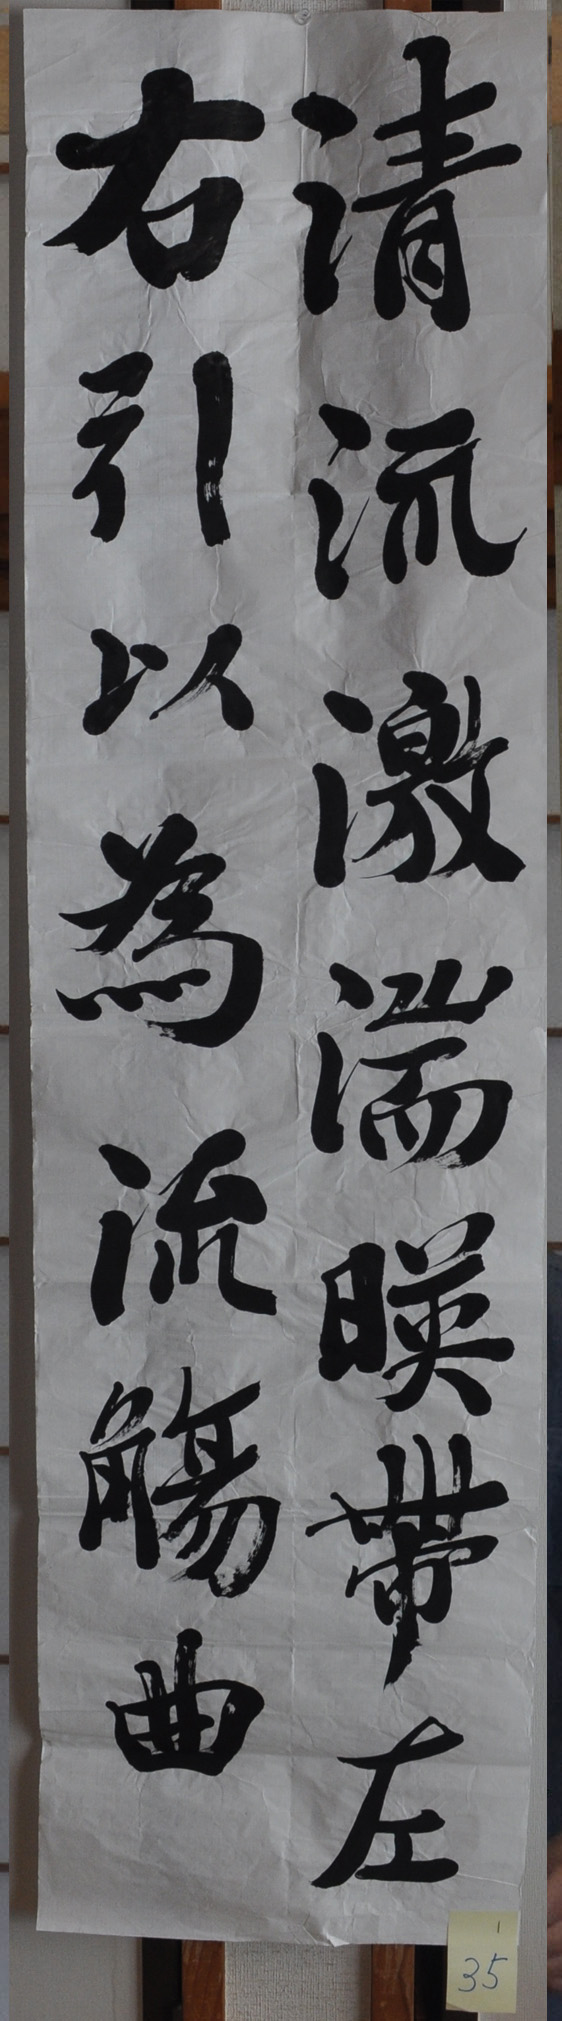 清流激湍暎帶左
右引以為流觴曲
1
35